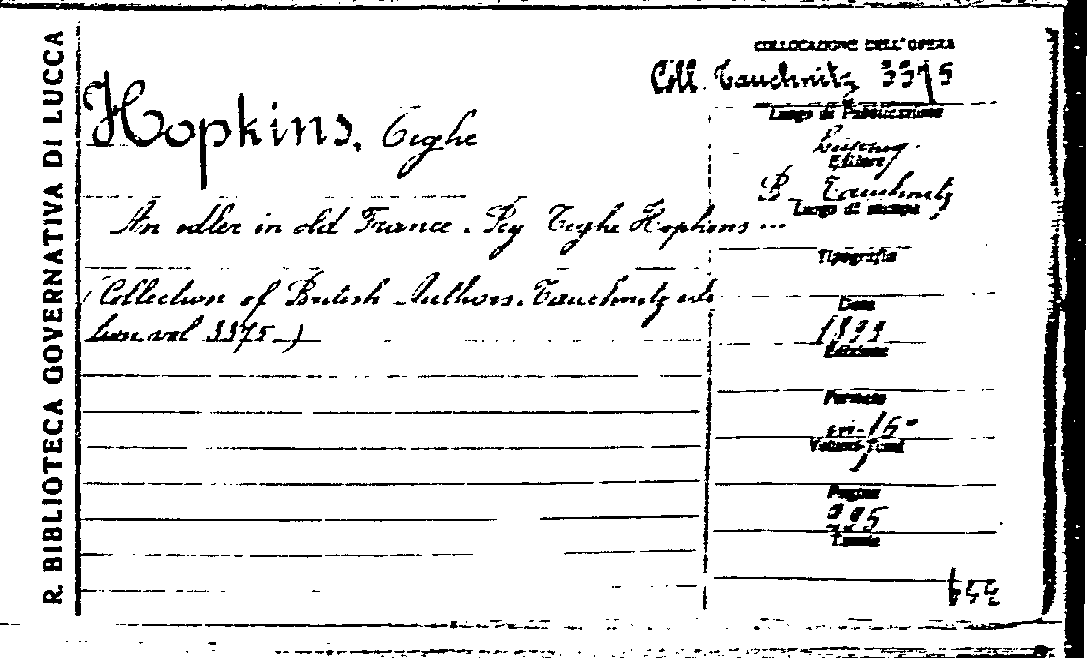 R. BIBLIOTECA GOVERNATIVA DI LUCCA
COLLOCAZIONE DELL'OPERA
Coll. Tauchnitz 3375
Hopkins, Tighe
Luogo di Pubblicazione
Editore
B. Tauchnitz
Luogo di stampa
An idler in old France. By Tighe Hopkins ...
Tipografia
(Collection of British Authors. Tauchnitz edi
tion vol 3375-)
Data
1899
Edizione
Formato
in-16°
Volumi-Tomi
1
Pagine
295
Tavole